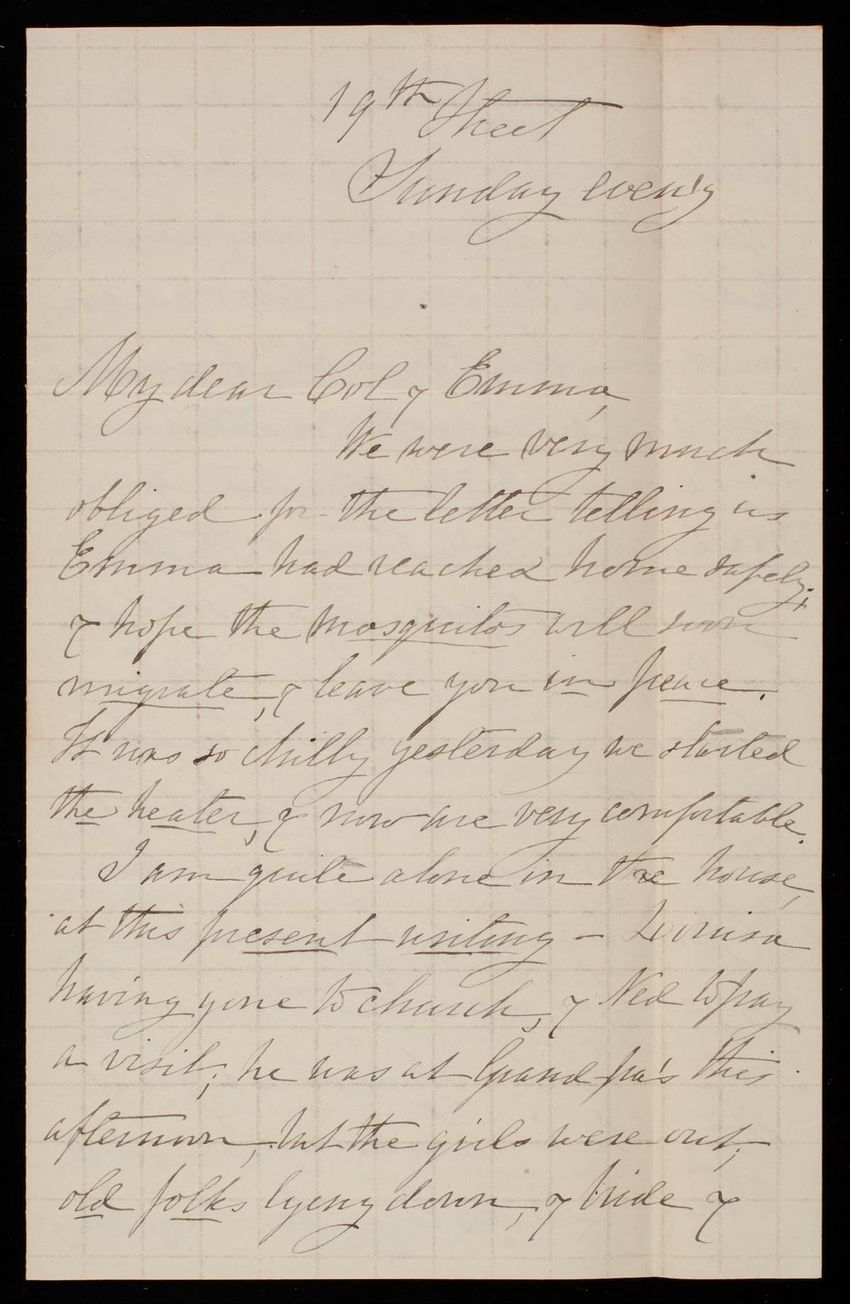 19th Street
Sunday even'g
My dear Col & Emma,
We were very much
obliged for the letter telling us
Emma had reached home safely;
& hope the mosquitos will soon
migrate, & leave you in peace.
It was so chilly yesterday we started
the heater, & now are very comfortable.
I am quite alone in the house,
at this present writing - Louisa
having gone to church, & Ned to pay
a visit; he was at Grand pa's this
afternoon, but the girls were out,
old folks lyeing down, & bride &